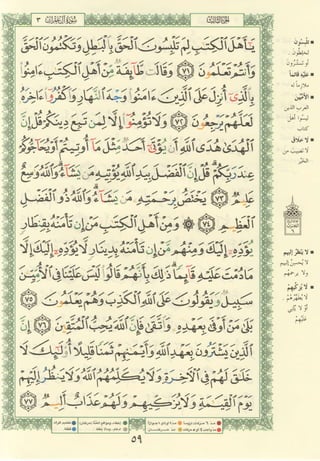 سورة آل عمران ٣
الجزء الثالث
يَٰٓأَهۡلَ ٱلۡكِتَٰبِ لِمَ تَلۡبِسُونَ ٱلۡحَقَّ بِٱلۡبَٰطِلِ وَتَكۡتُمُونَ ٱلۡحَقَّ
وَأَنتُمۡ تَعۡلَمُونَ ٧١ وَقَالَت طَّآئِفَةٞ مِّنۡ أَهۡلِ ٱلۡكِتَٰبِ ءَامِنُواْ
بِٱلَّذِيٓ أُنزِلَ عَلَى ٱلَّذِينَ ءَامَنُواْ وَجۡهَ ٱلنَّهَارِ وَٱكۡفُرُوٓاْ ءَاخِرَهُۥ
لَعَلَّهُمۡ يَرۡجِعُونَ ٧٢ وَلَا تُؤۡمِنُوٓاْ إِلَّا لِمَن تَبِعَ دِينَكُمۡ قُلۡ إِنَّ
ٱلۡهُدَىٰ هُدَى ٱللَّهِ أَن يُؤۡتَىٰٓ أَحَدٞ مِّثۡلَ مَآ أُوتِيتُمۡ أَوۡ يُحَآجُّوكُمۡ
عِندَ رَبِّكُمۡۗ قُلۡ إِنَّ ٱلۡفَضۡلَ بِيَدِ ٱللَّهِ يُؤۡتِيهِ مَن يَشَآءُۗ وَٱللَّهُ وَٰسِعٌ
عَلِيمٞ ٧٣ يَخۡتَصُّ بِرَحۡمَتِهِۦ مَن يَشَآءُۗ وَٱللَّهُ ذُو ٱلۡفَضۡلِ
ٱلۡعَظِيمِ ٧٤ وَمِنۡ أَهۡلِ ٱلۡكِتَٰبِ مَنۡ إِن تَأۡمَنۡهُ بِقِنطَارٖ
يُؤَدِّهِۦٓ إِلَيۡكَ وَمِنۡهُم مَّنۡ إِن تَأۡمَنۡهُ بِدِينَارٖ لَّا يُؤَدِّهِۦٓ إِلَيۡكَ إِلَّا
مَا دُمۡتَ عَلَيۡهِ قَآئِمٗاۗ ذَٰلِكَ بِأَنَّهُمۡ قَالُواْ لَيۡسَ عَلَيۡنَا فِي ٱلۡأُمِّيِّـۧنَ
سَبِيلٞ وَيَقُولُونَ عَلَى ٱللَّهِ ٱلۡكَذِبَ وَهُمۡ يَعۡلَمُونَ ٧٥
بَلَىٰۚ مَنۡ أَوۡفَىٰ بِعَهۡدِهِۦ وَٱتَّقَىٰ فَإِنَّ ٱللَّهَ يُحِبُّ ٱلۡمُتَّقِينَ ٧٦ إِنَّ
ٱلَّذِينَ يَشۡتَرُونَ بِعَهۡدِ ٱللَّهِ وَأَيۡمَٰنِهِمۡ ثَمَنٗا قَلِيلًا أُوْلَٰٓئِكَ لَا
خَلَٰقَ لَهُمۡ فِي ٱلۡأٓخِرَةِ وَلَا يُكَلِّمُهُمُ ٱللَّهُ وَلَا يَنظُرُ إِلَيۡهِمۡ
يَوۡمَ ٱلۡقِيَٰمَةِ وَلَا يُزَكِّيهِمۡ وَلَهُمۡ عَذَابٌ أَلِيمٞ ٧٧
٥٩